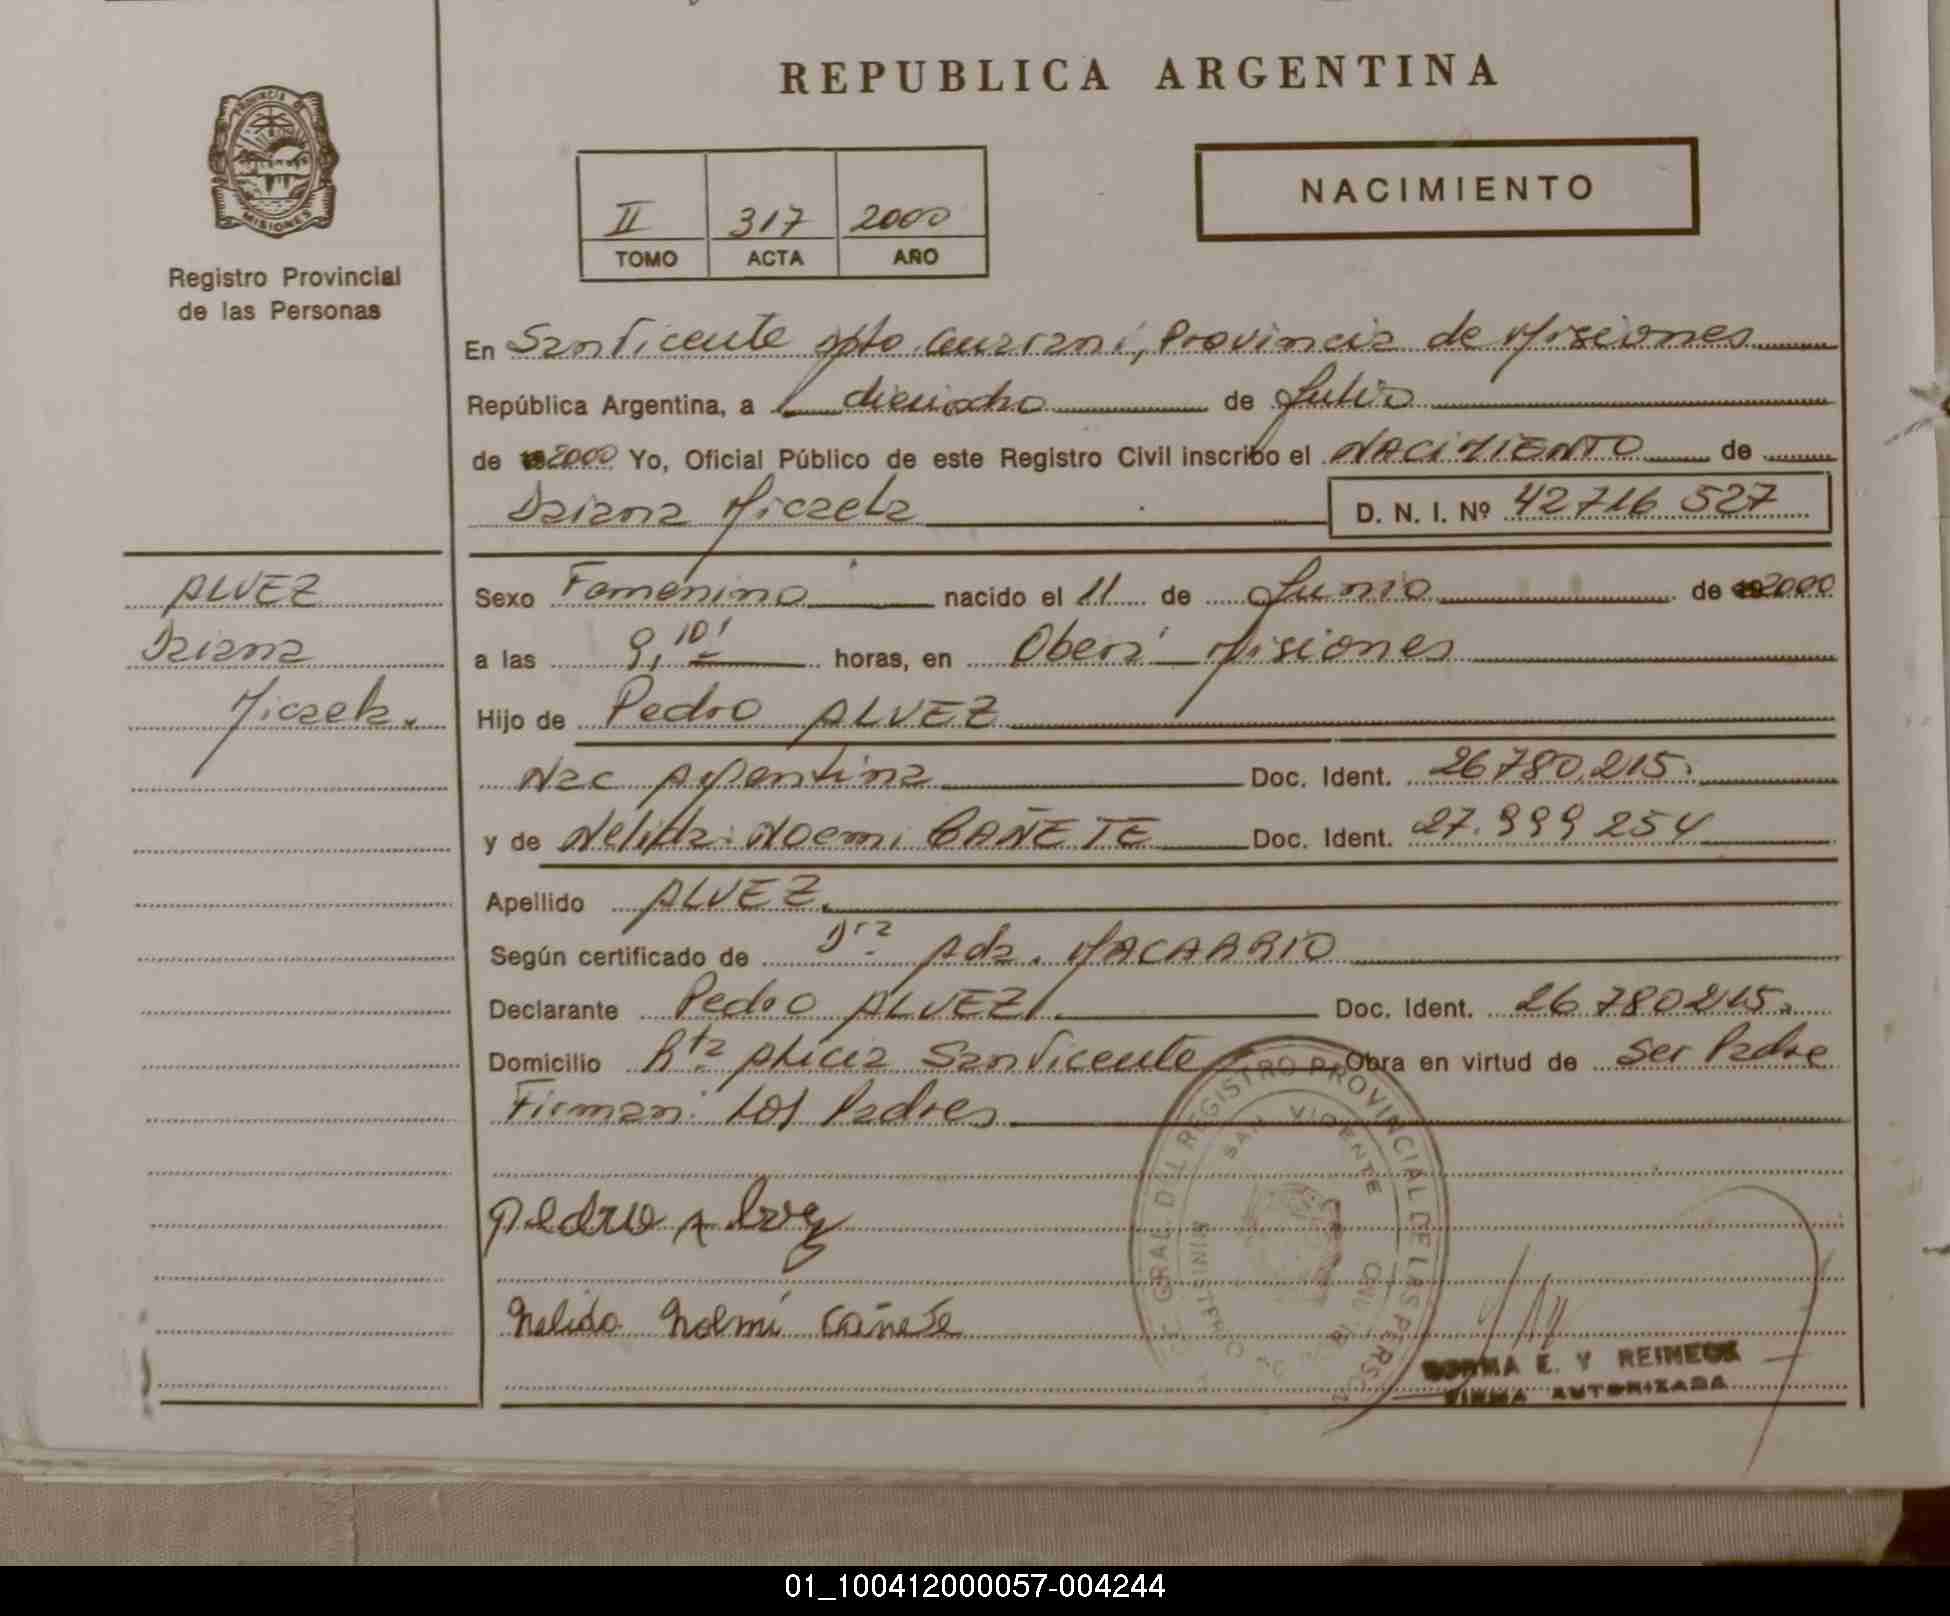 REPUBLICA ARGENTINA
PROVINCIA DE
MISIONES
Registro Provincial
de las Personas
II 317 2000
TOMO ACTA AÑO
NACIMIENTO
En San Vicente Dpto. Guaraní, Provincia de Misiones
República Argentina, a dieciocho de Julio
de 2000 Yo, Oficial Público de este Registro Civil inscribo el NACIMIENTO de
Daiana Micaela D. N. I. Nº 42716 527
ALVEZ
Daiana
Micaela.
Sexo Femenino nacido el 11 de Junio de 2000
a las 9,10' horas, en Oberá Misiones
Hijo de Pedro ALVEZ
Nac Argentina Doc. Ident. 26780.215.
y de Nelida Noemi CAÑETE Doc. Ident. 27.999 254
Apellido ALVEZ.
Según certificado de Dra Ada. MACARRIO
Declarante Pedro ALVEZ Doc. Ident. 26 780215.
Domicilio Rta Alicia San Vicente Obra en virtud de Ser Padre
Firman: Los Padres
Pedro Alvez
Nelida Noemi Cañete
GRAL DEL REGISTRO PROVINCIAL DE LAS PERSON
SAN VICENTE
E. Y REINECK
FIRMA AUTORIZADA
01_100412000057-004244